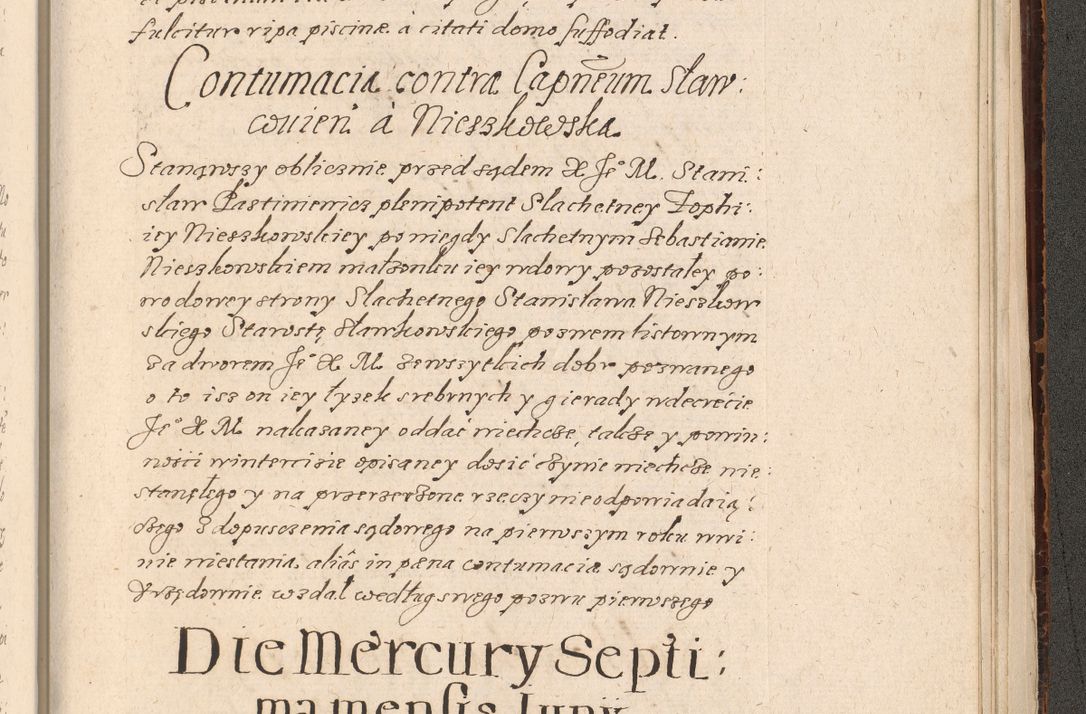 fulcitur ripa piscinæ a citati domo suffodiat.
Contumacia contra Capneum Sław:
couien à Nieszkowska
Stanąwszy oblicznie przed sądem X Je° M. Stani:
sław Pastiniewicz plenipotent Slachetney Zophi:
iey Nieszkowskiey po niegdy Slachetnym Sebastianie
Nieszkowskiem małzonku iey wdowy pozostałey po:
wodowey strony Slachetnego Stanisława Nieszkow
skiego Starostę Sławkowskiego pozwem listownym
za dworem Je° X M. zewszytkich dobr pozwanego
o to isz on iey łyzek srebrnych y gierady wdecrecie
Je° X M nakazaney oddać niechcze, takze y powin:
ności wintercizie opisaney dosić czynie niechcze nie:
stanęłego y na przerzeczone rzeczy nieodpowiadaią:
czego z dopusczenia sądowego na pierwszym roku wwi:
nie niestania, aliâs in pæna contumaciæ sądownie y
Vrzędownie wzdał według swego pozwu pierwszego
Die Mercury Septi:
ma mensis Juny